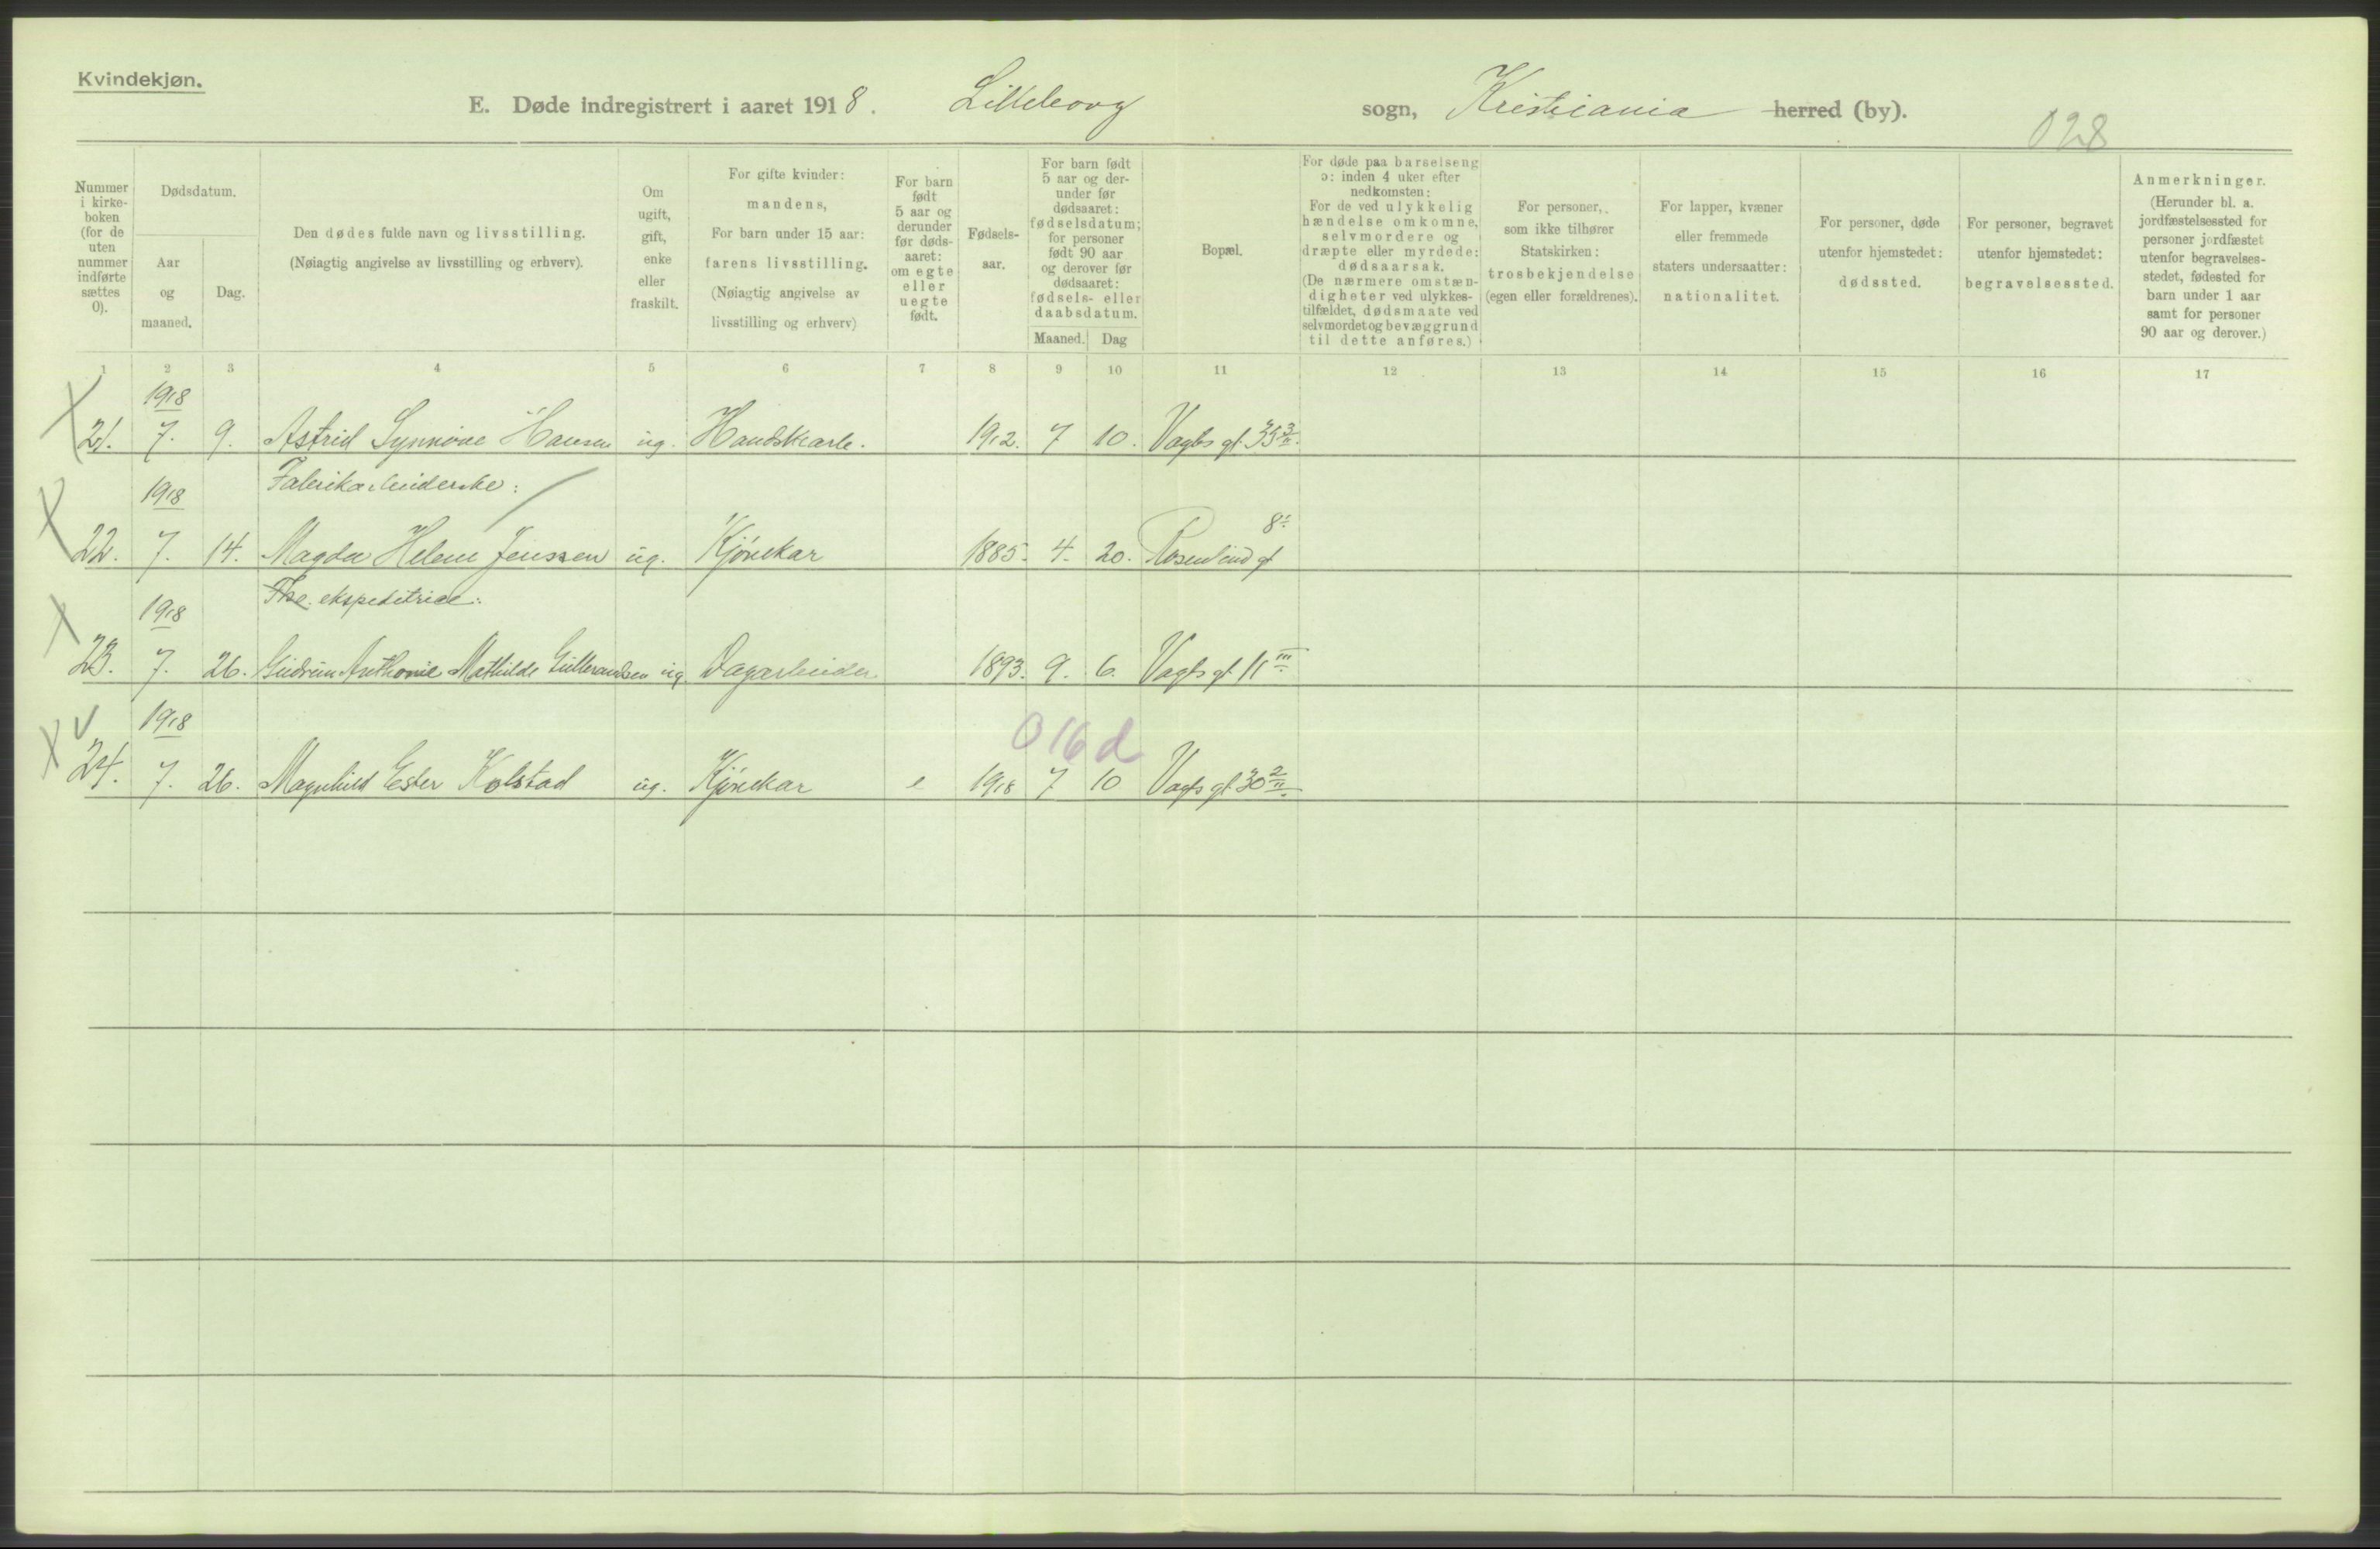 Kvindekjøn.
E. Døde indregistrert i aaret 1918. Lilleborg sogn, Kristiania herred (by).
028
Nummer i kirke-boken (for de uten nummer indførte sættes 0).
Dødsdatum.
Aar og maaned.
Dag.
Den dødes fulde navn og livsstilling.
(Nøiagtig angivelse av livsstilling og erhverv).
Om ugift, gift, enke eller fraskilt.
For gifte kvinder: mandens,
For barn under 15 aar: farens livsstilling.
(Nøiagtig angivelse av livsstilling og erhverv)
For barn født 5 aar og derunder før døds-aaret: om egte eller uegte født.
Fødsels-aar.
For barn født 5 aar og der-under før dødsaaret: fødselsdatum; for personer født 90 aar og derover før dødsaaret: fødsels- eller daabsdatum.
Maaned. Dag
Bopæl.
For døde paa barselseng ɔ: inden 4 uker efter nedkomsten:
For de ved ulykkelig hændelse omkomne, selvmordere og dræpte eller myrdede: dødsaarsak.
(De nærmere omstæn-digheter ved ulykkes-tilfældet, dødsmaate ved selvmordet og bevæggrund til dette anføres.)
For personer, som ikke tilhører Statskirken: trosbekjendelse (egen eller forældrenes).
For lapper, kvæner eller fremmede staters undersaatter: nationalitet.
For personer, døde utenfor hjemstedet: dødssted.
For personer, begravet utenfor hjemstedet: begravelsessted.
Anmerkninger.
(Herunder bl. a. jordfæstelsessted for personer jordfæstet utenfor begravelses-stedet, fødested for barn under 1 aar samt for personer 90 aar og derover.)
1 2 3 4 5 6 7 8 9 10 11 12 13 14 15 16 17
1918
21. 7. 9. Astrid Synnøve Hansen ug. Handskearb. 1912. 7 10. Vagts gt. 35 3/II.
1918 Fabrikarbeiderske:
22. 7. 14. Magda Helene Jenssen ug. Kjørekar 1885. 4. 20. Rosenlund gt 8I
1918 ekspeditrice:
23. 7. 26. Gudrun Anthonie Mathilde Gulbrandsen ug. Dagarbeider 1893. 9. 6. Vagts gt. 11 III
1918
016d
24. 7. 26. Magnhild Ester Kolstad ug. Kjørekar e 1918 7 10 Vagts gt. 30 2/II.